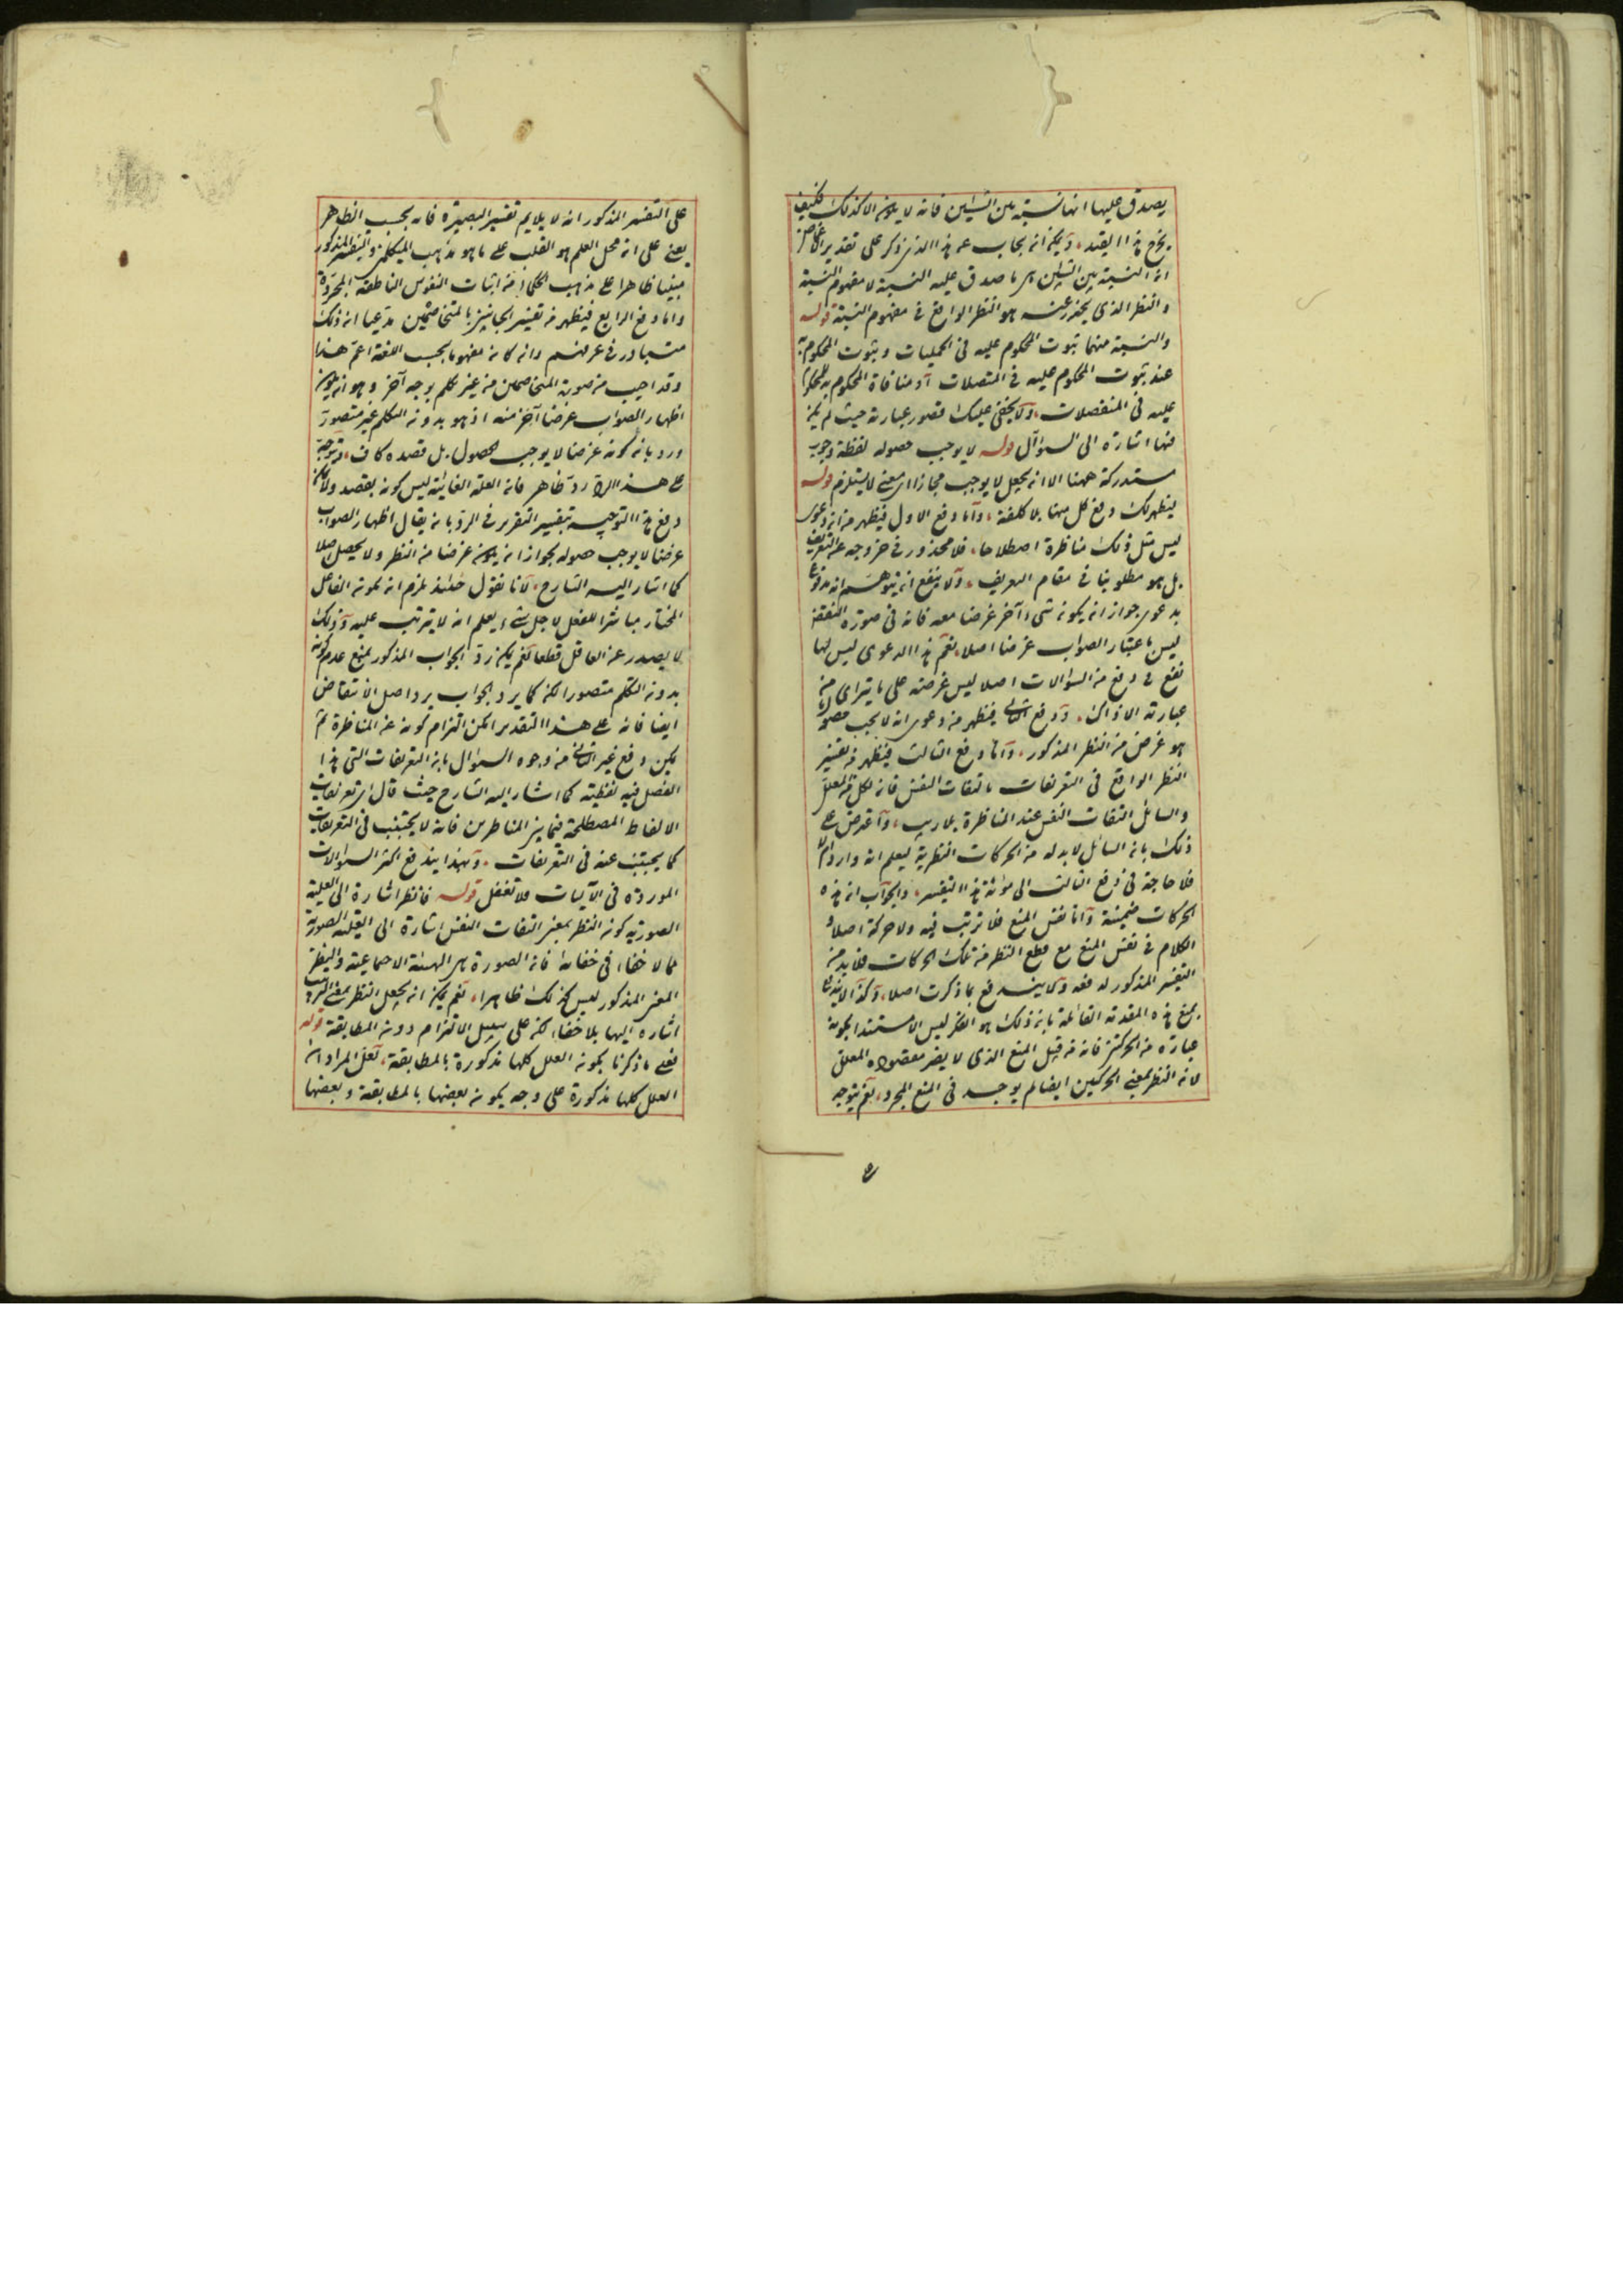 يصدق عليها انها نسبة بين الشيئين فانه لا يكون الا كذلك فكيف
يخرج هذا القيد ويمكن ان يجاب عن هذا الذي ذكر على تقدير
ان النسبة بين الشيئين اى ما صدق عليه النسبة لا مفهوم النسبة
والنظر الذى يحترز عنه هو النظر الواقع فى مفهوم النسبة قوله
والنسبة منهما ثبوت المحكوم عليه فى الحمليات وثبوت المحكوم به
عند ثبوت المحكوم عليه فى المتصلات او منافاة المحكوم به للمحكوم
عليه فى المنفصلات ولا يخفى عليك قصور عبارته حيث لم يكن
فيها اشارة الى السؤال قوله لا يوجب حصوله لفظة وجوب
مستدركة ههنا الا ان يجعل لا يوجب مجازا اى بمعنى لا يستلزم قوله
ليظهر لك دفع كل منها بلا كلفة واما دفع الاول فيظهر من ان دعوى
ليس مثل ذلك مناظرة اصطلاحا فلا محذور فى خروجه عن التعريف
بل هو مطلوبنا فى مقام التعريف ولا ينفع ان يتوهم انه مدفوع
بدعوى جواز ان يكون شىء آخر غرضا معه فانه فى صورة النقض
ليس باعتبار الصواب غرضا اصلا نعم هذا الدعوى ليس لها
نفع فى دفع من السؤالات اصلا ليس غرضه على ما يترائى من
عبارته الا ذاك ودفع الثانى فيظهر من دعوى انه لا يجب حصول
هو غرض من النظر المذكور واما دفع الثالث فيظهر من تفسير
النظر الواقع فى التعريفات بالتفات النفس فان لكل من المعلل
والسائل التفات النفس عند المناظرة بلا ريب واعترض على
ذلك بان السائل لا بد له من الحركات النظرية ليعلم انه وارد ام لا
فلا حاجة فى دفع الثالث الى مؤنة هذا التفسير والجواب ان هذه
الحركات ضمنية واما نفس المنع فلا ترتب فيه ولا حركة اصلا و
الكلام فى نفس المنع مع قطع النظر من تلك الحركات فلا بد من
التفسير المذكور لدفعه ولا يندفع بما ذكرت اصلا وكذا لا يندفع
بمنع هذه المقدمة القائلة بان ذلك هو الفكر ليس الا مستندا بكونه
عبارة من الحركتين فانه من قبيل المنع الذى لا يضر مقصوده المعلل
لان النظر بمعنى الحركتين ايضا لم يوجد فى المنع المجرد نعم يتوجه
على التفسير المذكور انه لا يلايم تفسير البصيرة فانه بحسب الظاهر
يعنى على ان محل العلم هو القلب على ما هو مذهب المتكلمين والتفسير المذكور
مبنيا ظاهرا على مذهب الحكماء من اثبات النفوس الناطقة المجردة
واما دفع الرابع فيظهر من تفسير الجانبين بالمتخاصمين مدعيا ان ذلك
متبادر فى عرفهم وان كان مفهوما بحسب اللغة اعم هذا
وقد اجيب من صوبة المتخاصمين من غير تكلم بوجه آخر وهو ان يكون
اظهار الصواب غرضا آخر منه اذ هو بدون التكلم غير متصور
ورد بان كونه غرضا لا يوجب الحصول بل قصده كاف وتوجه
على هذا الرد رد ظاهر فان العلة الغائية ليس كونه بقصد ولا يمكن
دفع هذا التوجيه بتغيير التقرير فى الرد بان يقال اظهار الصواب
غرضا لا يوجب حصوله لجواز ان يكون غرضا من النظر ولا يحصل اصلا
كما اشار اليه الشارح لانا نقول حينئذ يلزم ان يكون الفاعل
المختار مباشرا للفعل لاجل شىء يعلم انه لا يترتب عليه وذلك
لا يصدر عن العاقل قطعا نعم يمكن رد الجواب المذكور بمنع عدم كونه
بدون التكلم متصورا لكن كما يرد الجواب يرد اصل الانتقاض
ايضا فانه على هذا التقدير امكن التزام كونه عن المناظرة ثم
يمكن دفع غير الثانى من وجوه السؤال بان التعريفات التى هذا
الفصل فيه لفظية كما اشار اليه الشارح حيث قال اى تعريفات
الالفاظ المصطلحة فيما بين المناظرين فانه لا يجتنب فى التعريفات
كما يجتنب عنه فى التعريفات وبهذا يندفع اكثر السؤالات
الموردة فى الآيات فلا تغفل قوله فالنظر اشارة الى العلية
الصورية كون النظر بمعنى التفات النفس اشارة الى العلة الصورية
مما لا خفاء فى خفائه فان الصورة هى الهيئة الاجتماعية والنظر
المعنى المذكور ليس كذلك ظاهرا نعم يمكن ان يجعل النظر بمعنى الترتيب
اشارة اليها بلا خفاء لكن على سبيل الالتزام دون المطابقة قوله
فعلى ما ذكرنا يكون العلل كلها مذكورة بالمطابقة لعل المراد ان
العلل كلها مذكورة على وجه يكون بعضها بالمطابقة وبعضها